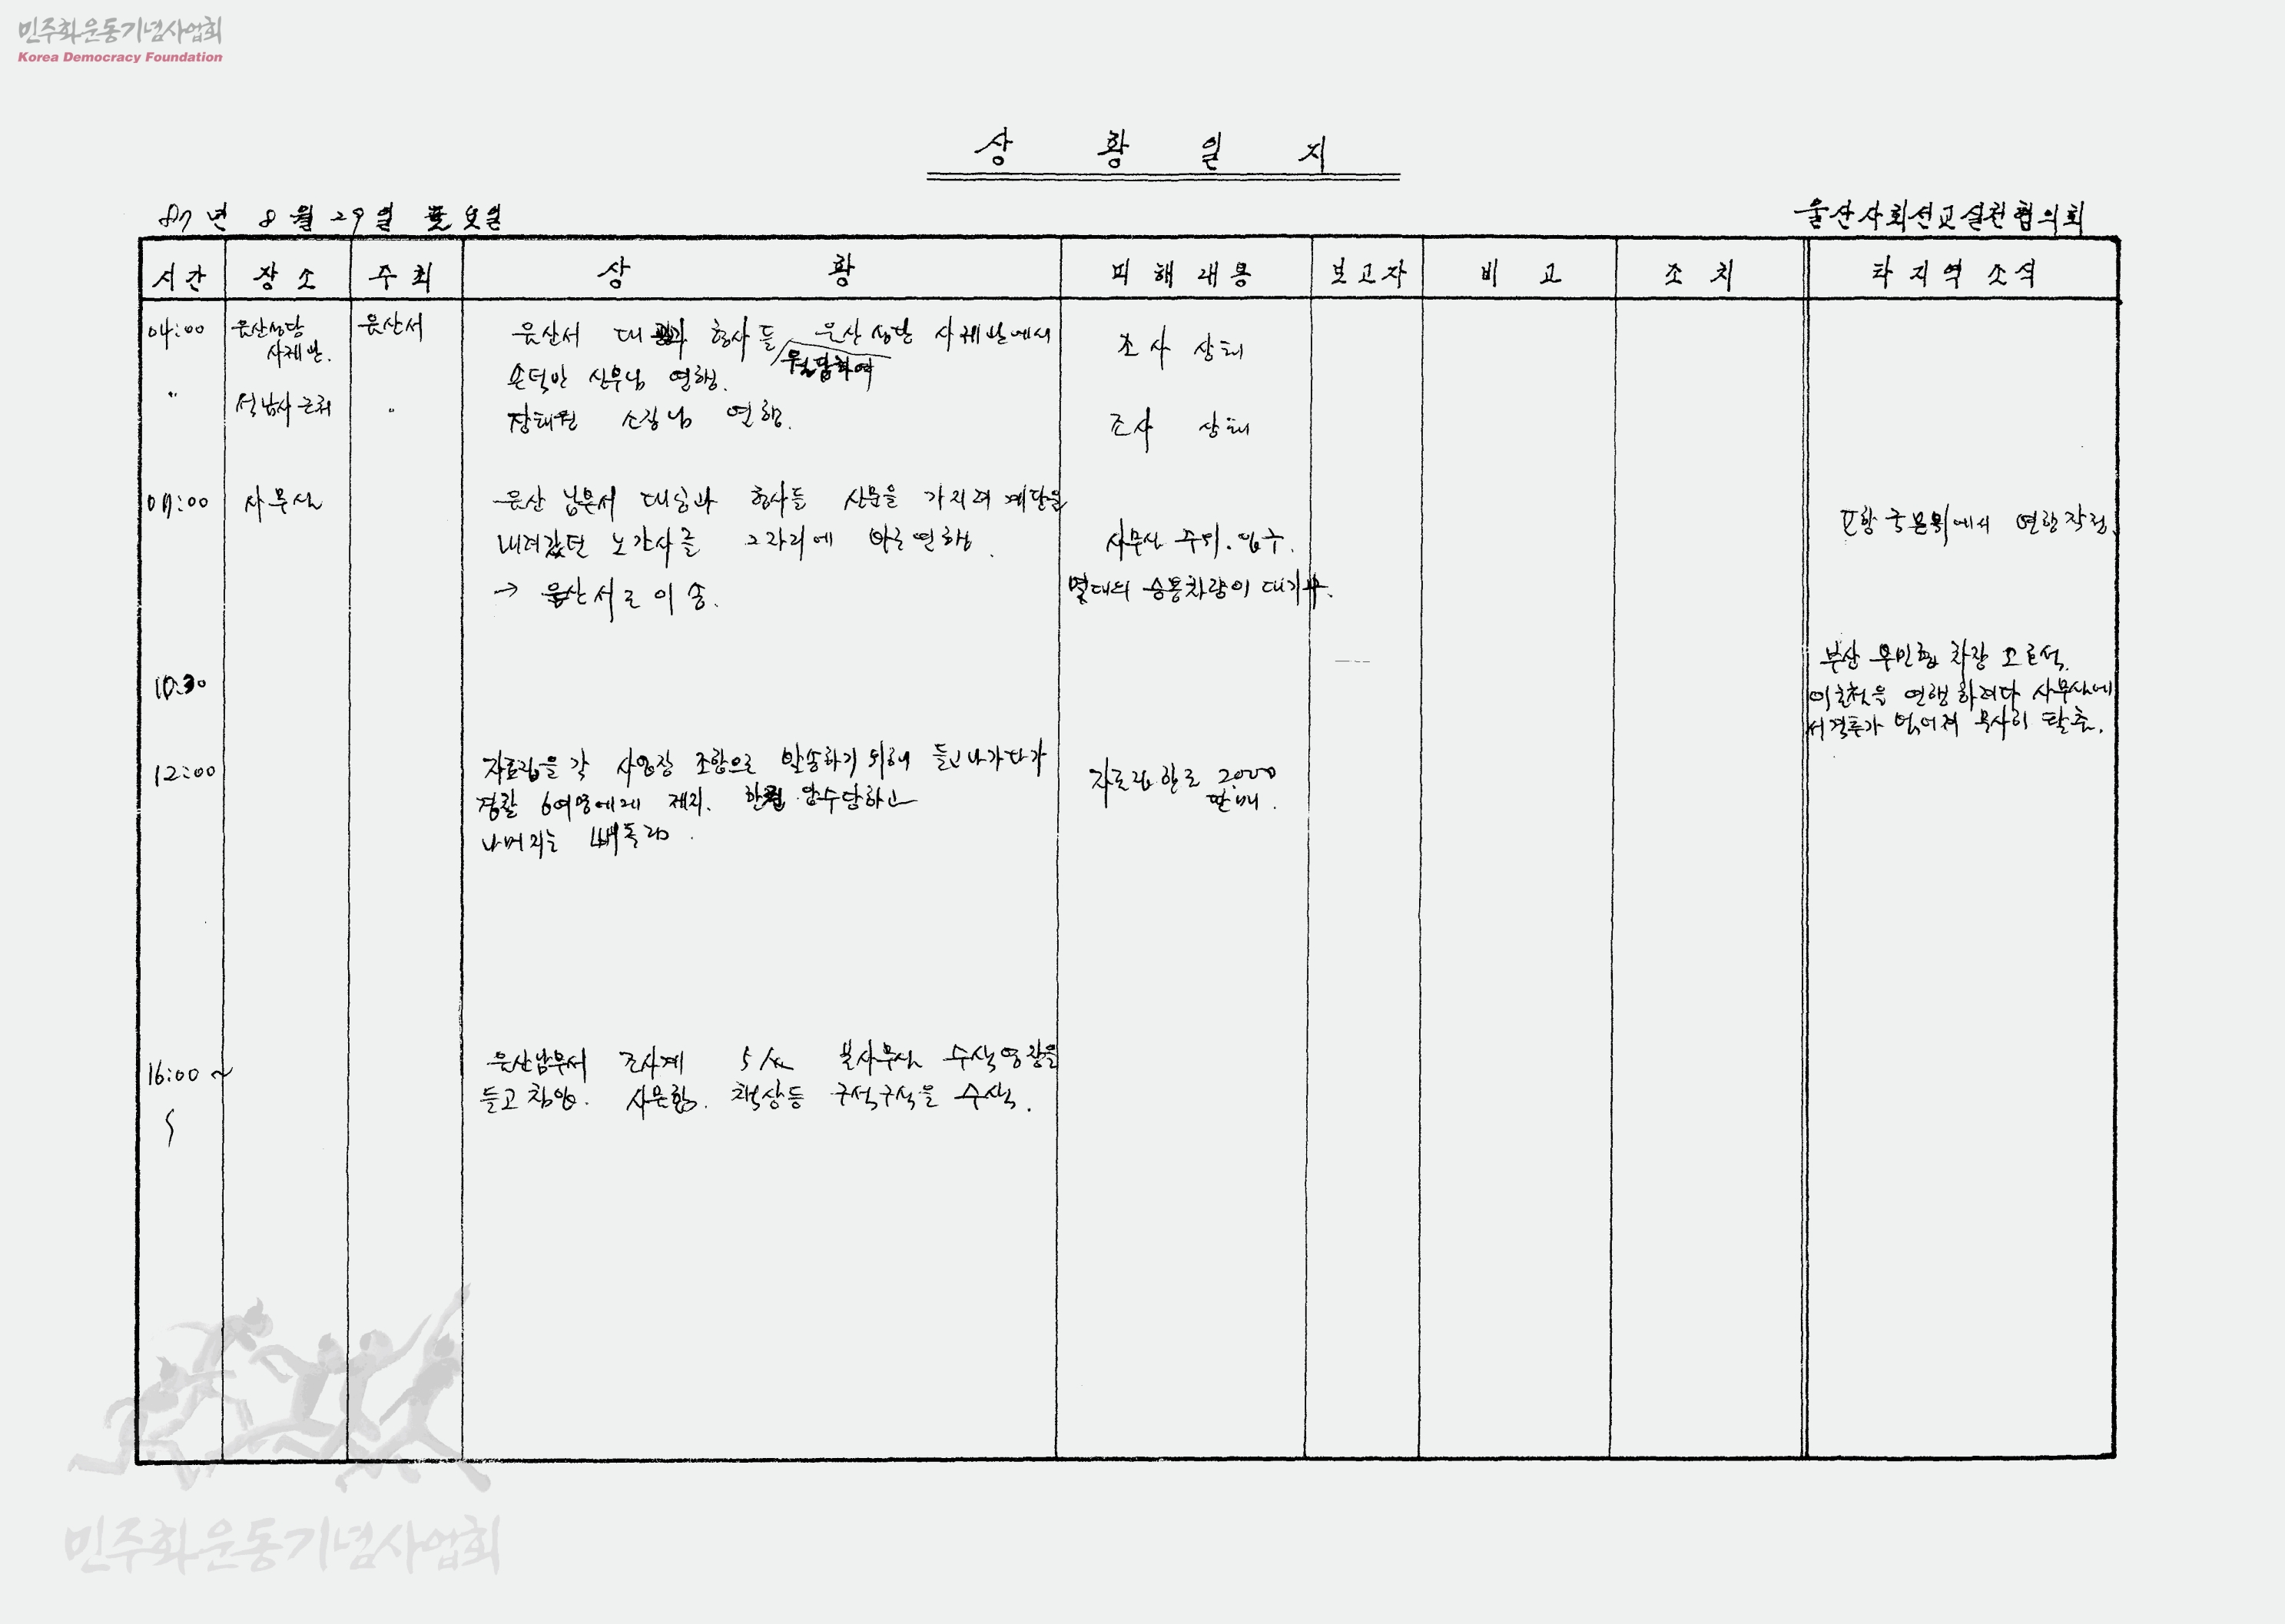 민주화운동기념사업회
Korea Democracy Foundation
상 황 일 지
87년 8월 29일 토요일
울산사회선교실천협의회
시간 장소 주최 상 황 피해내용 보고자 비고 조치 타지역 소식
04:00 울산성당 울산서 울산서 대공과 형사들 울산성당 사제관에서 조사 상태
사제관.
월담하여
손덕만 신부님 연행.
" 석남사 근처 " 장태원 소장님 연행. 조사 상태
07:00 사무실 울산 남부서 대공과 형사들 신문을 가지러 계단을
내려갔던 노간사를 그 자리에 바로 연행. 사무실 주위. 입구.
→ 울산서로 이송. 몇대의 승용차량이 대기中.
포항 국본위에서 연행작전.
10:30 부산 사무실에
이호철을 연행하려다 사무실에
서 격투가 벌어져 무사히 탈출.
12:00 자료집을 각 사업장 조합으로 발송하기 위해 들고나가다가 자료집 한로 2000
경찰 6여명에게 제지. 압수당하고
나머지는 빼돌림.
16:00 ~ 울산남부서 조사계 5人 본사무실 수색영장을
들고 침입. 사물함. 책상등 구석구석을 수색.
민주화운동기념사업회